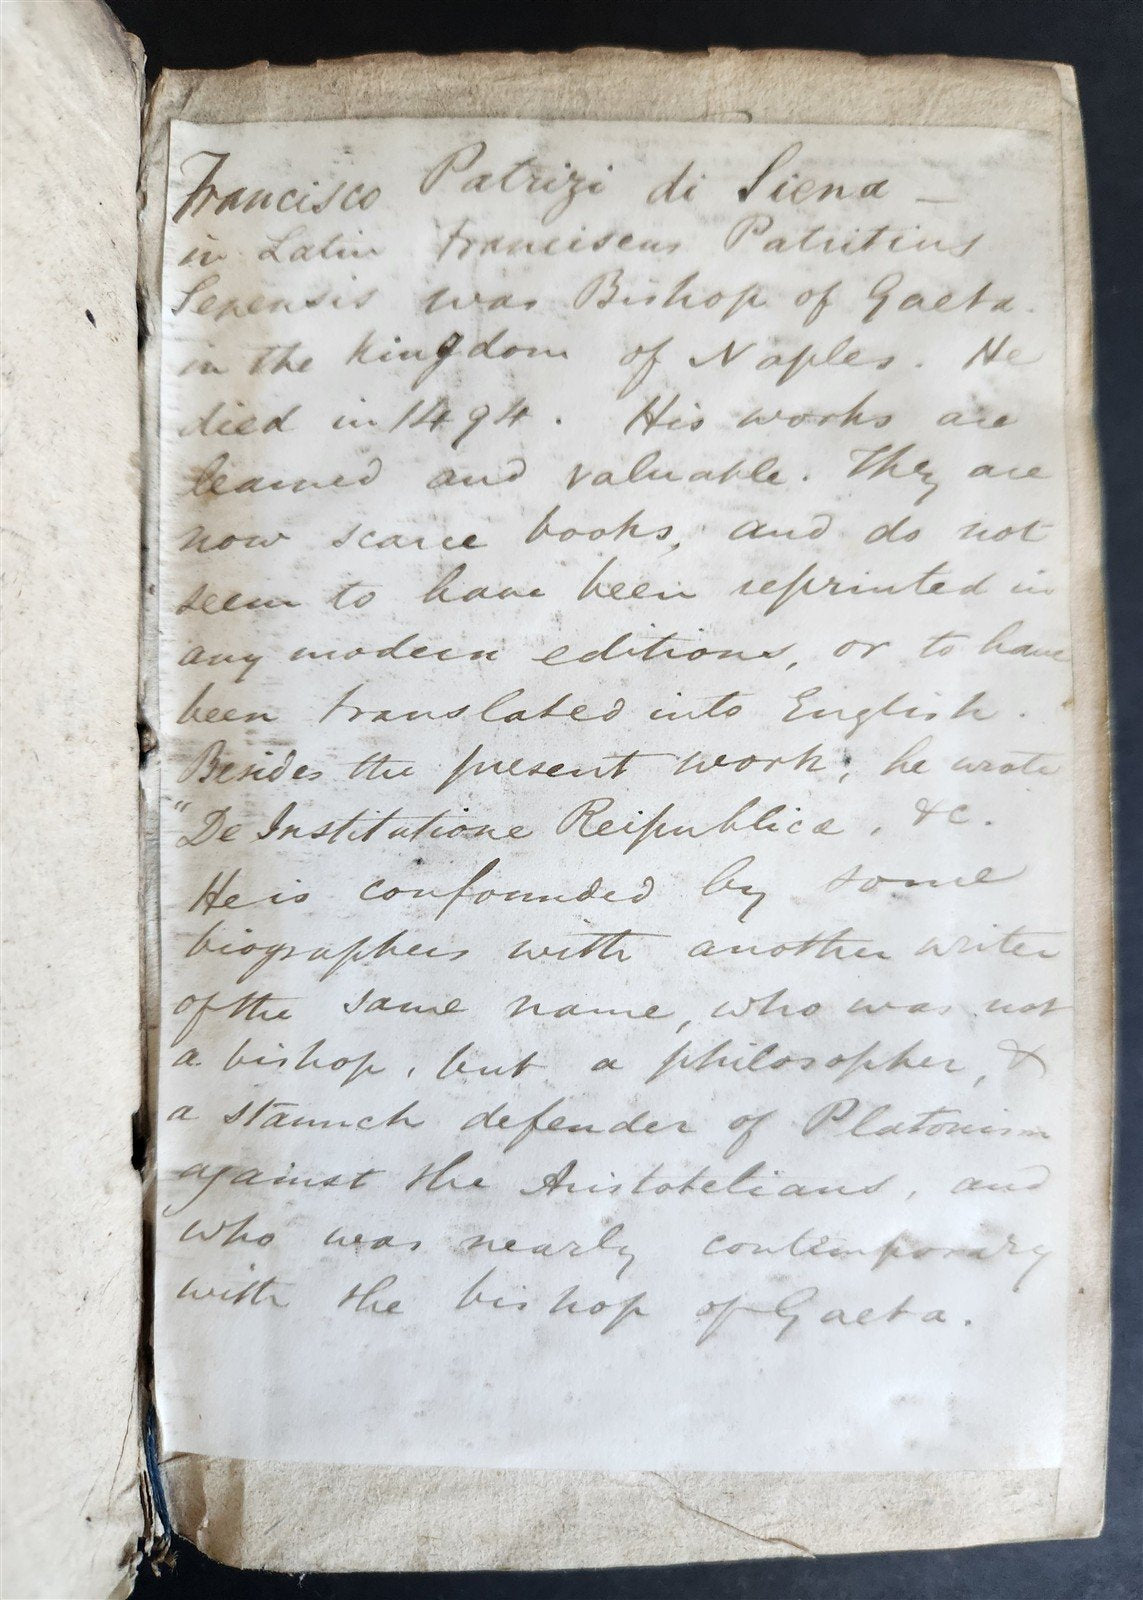 Francisco Patrizi di Siena –
in Latin Franciscus Patritius
Senensis was Bishop of Gaeta.
in the Kingdom of Naples. He
died in 1494. His works are
learned and valuable. They are
now scarce books, and do not
seem to have been reprinted in
any modern editions, or to have
been translated into English.
Besides the present work, he wrote
"De Institutione Reipublicæ, &c.
He is confounded by some
biographers with another writer
of the same name, who was not
a bishop, but a philosopher, &
a staunch defender of Platonism
against the Aristotelians, and
who was nearly contemporary
with the bishop of Gaeta.